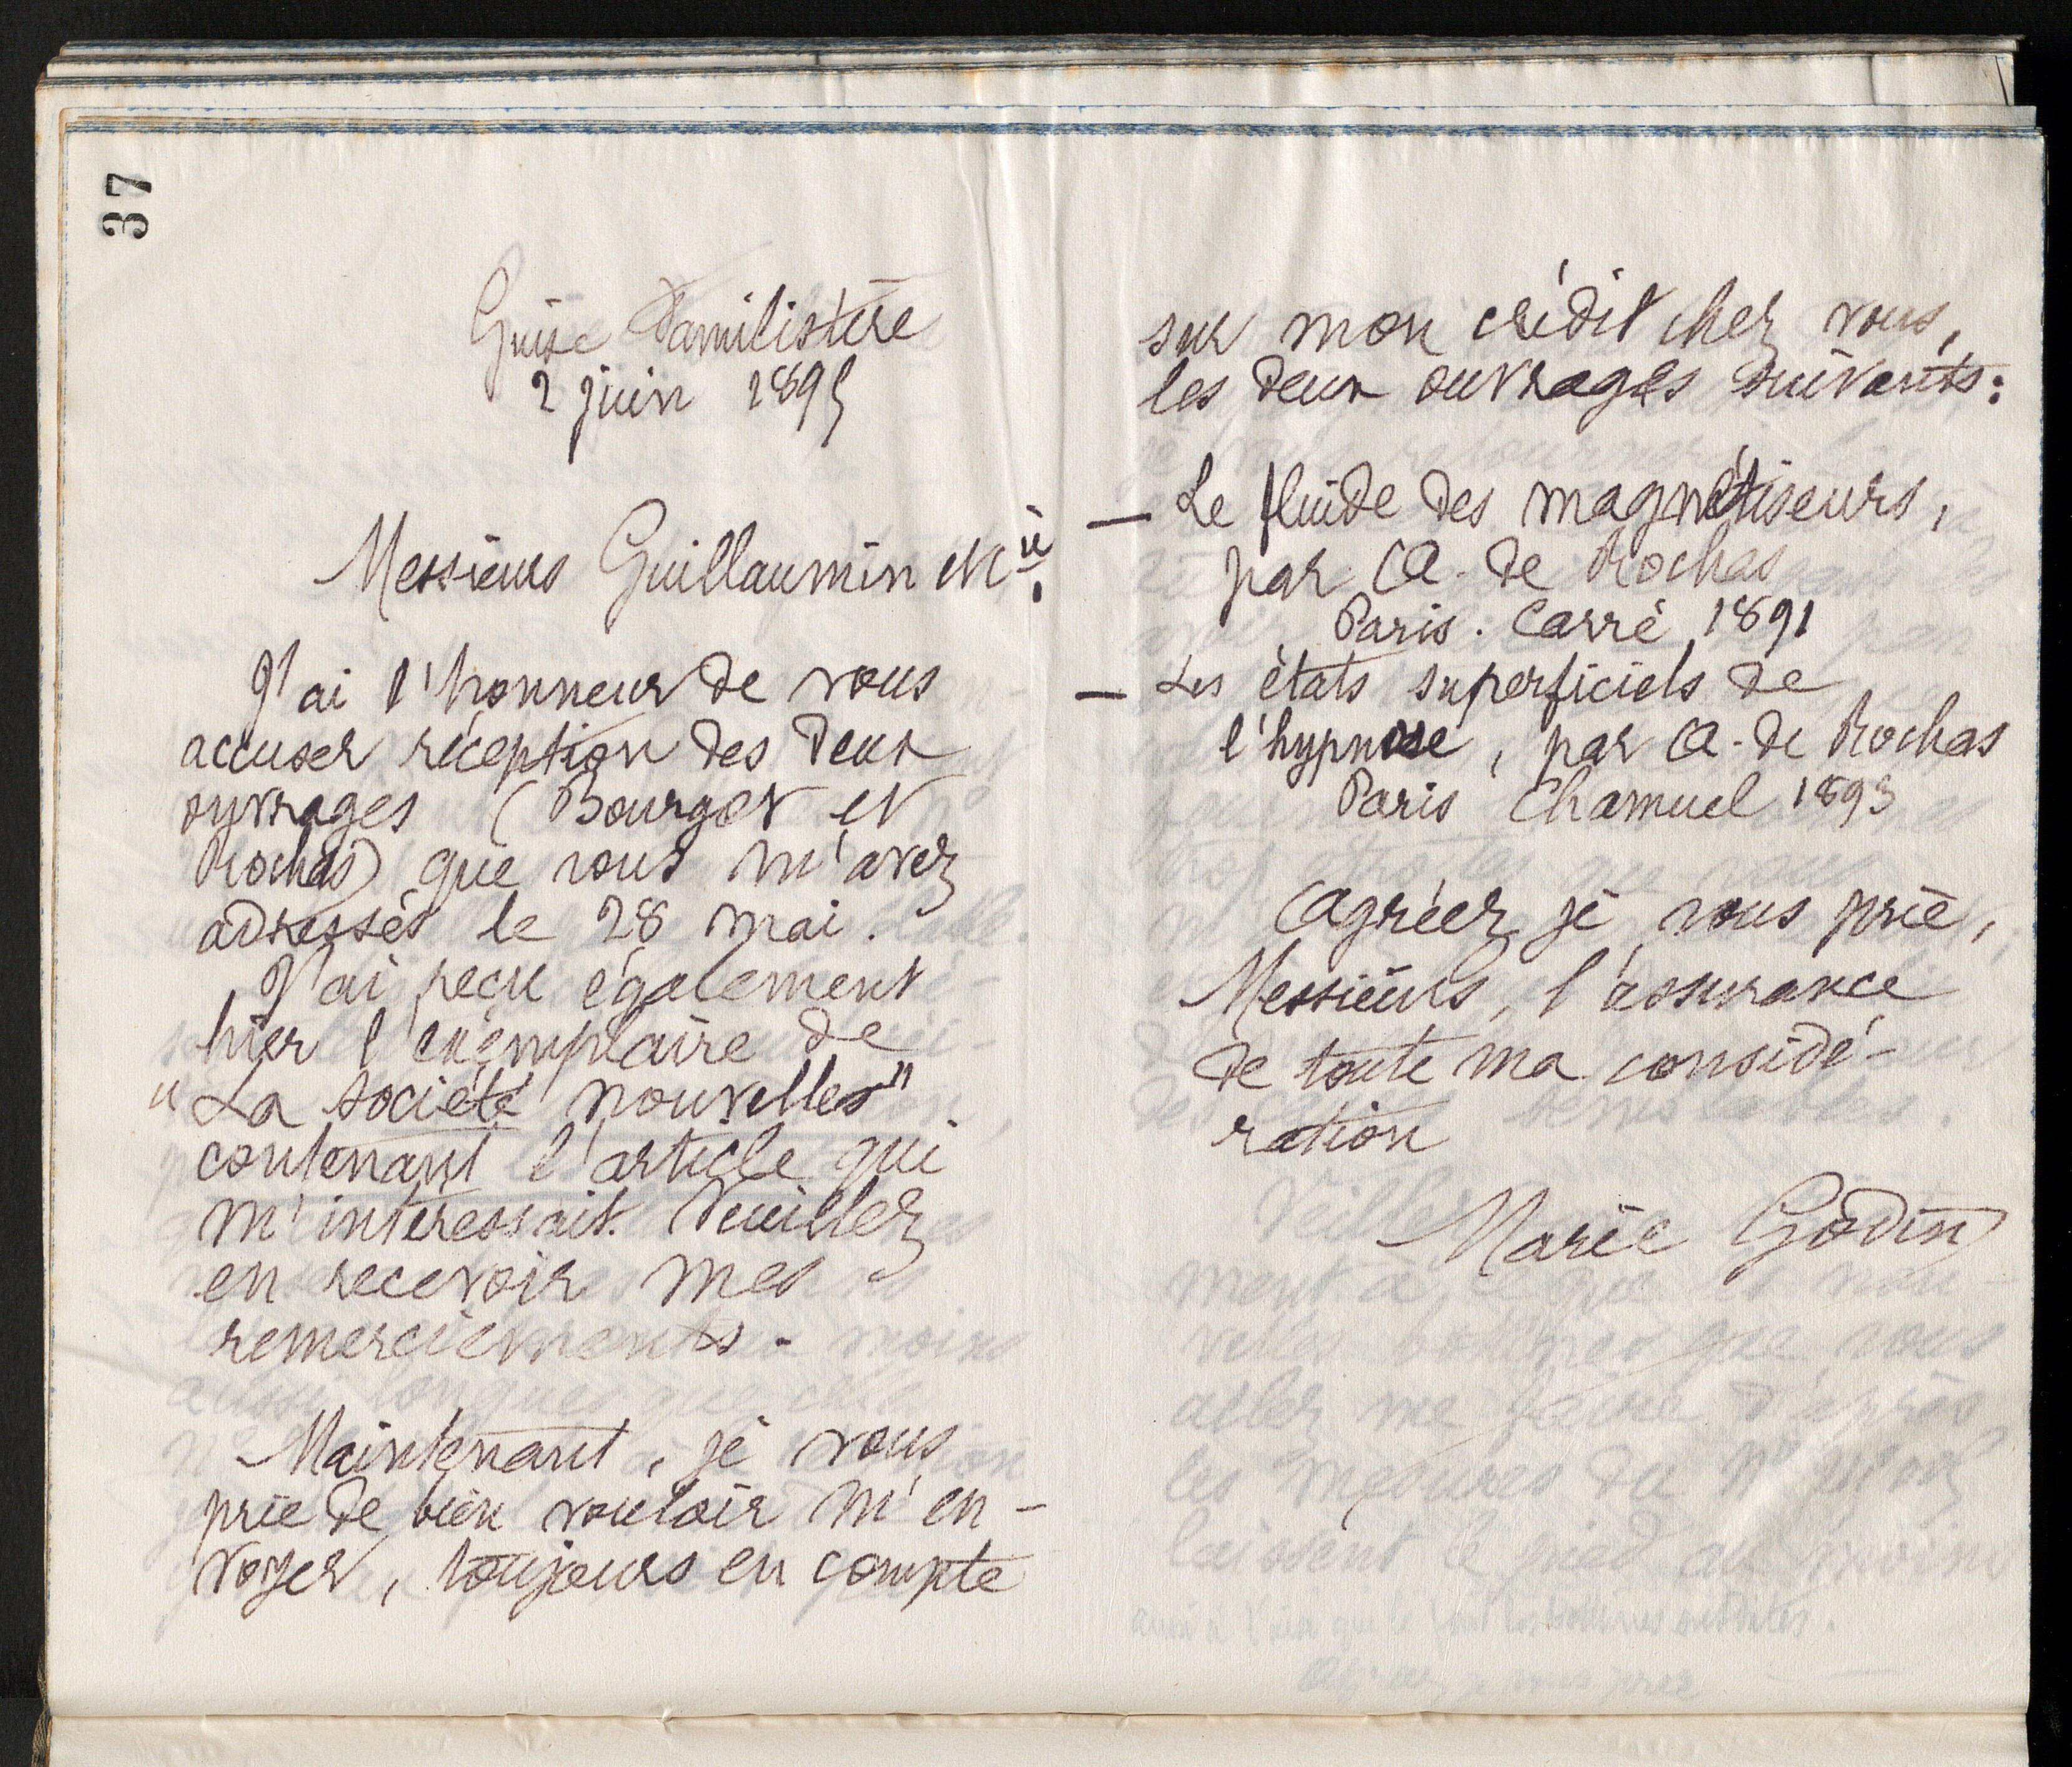 37
Guise Familistère
2 juin 1895
Messieurs Guillaumin et Cie.
J'ai l'honneur de vous
accuser réception des deux
ouvrages (Bourget et
Rochas) que vous m'avez
adressés le 28 mai.
J'ai reçu également
hier l'exemplaire de
"La société nouvelles"
contenant l'article qui
m'intéressait. Veuillez
en recevoir mes
remerciements.
Maintenant, je vous
prie de bien vouloir m'en-
voyer, toujours en compte
sur mon crédit chez vous,
les deux ouvrages suivants:
— Le fluide des magnétiseurs,
par A. de Rochas
Paris. Carré 1891
— Les états superficiels de
l'hypnose, par A. de Rochas
Paris Chamuel 1893
Agréez, je vous prie,
Messieurs, l'assurance
de toute ma considé-
ration
Marie Godin